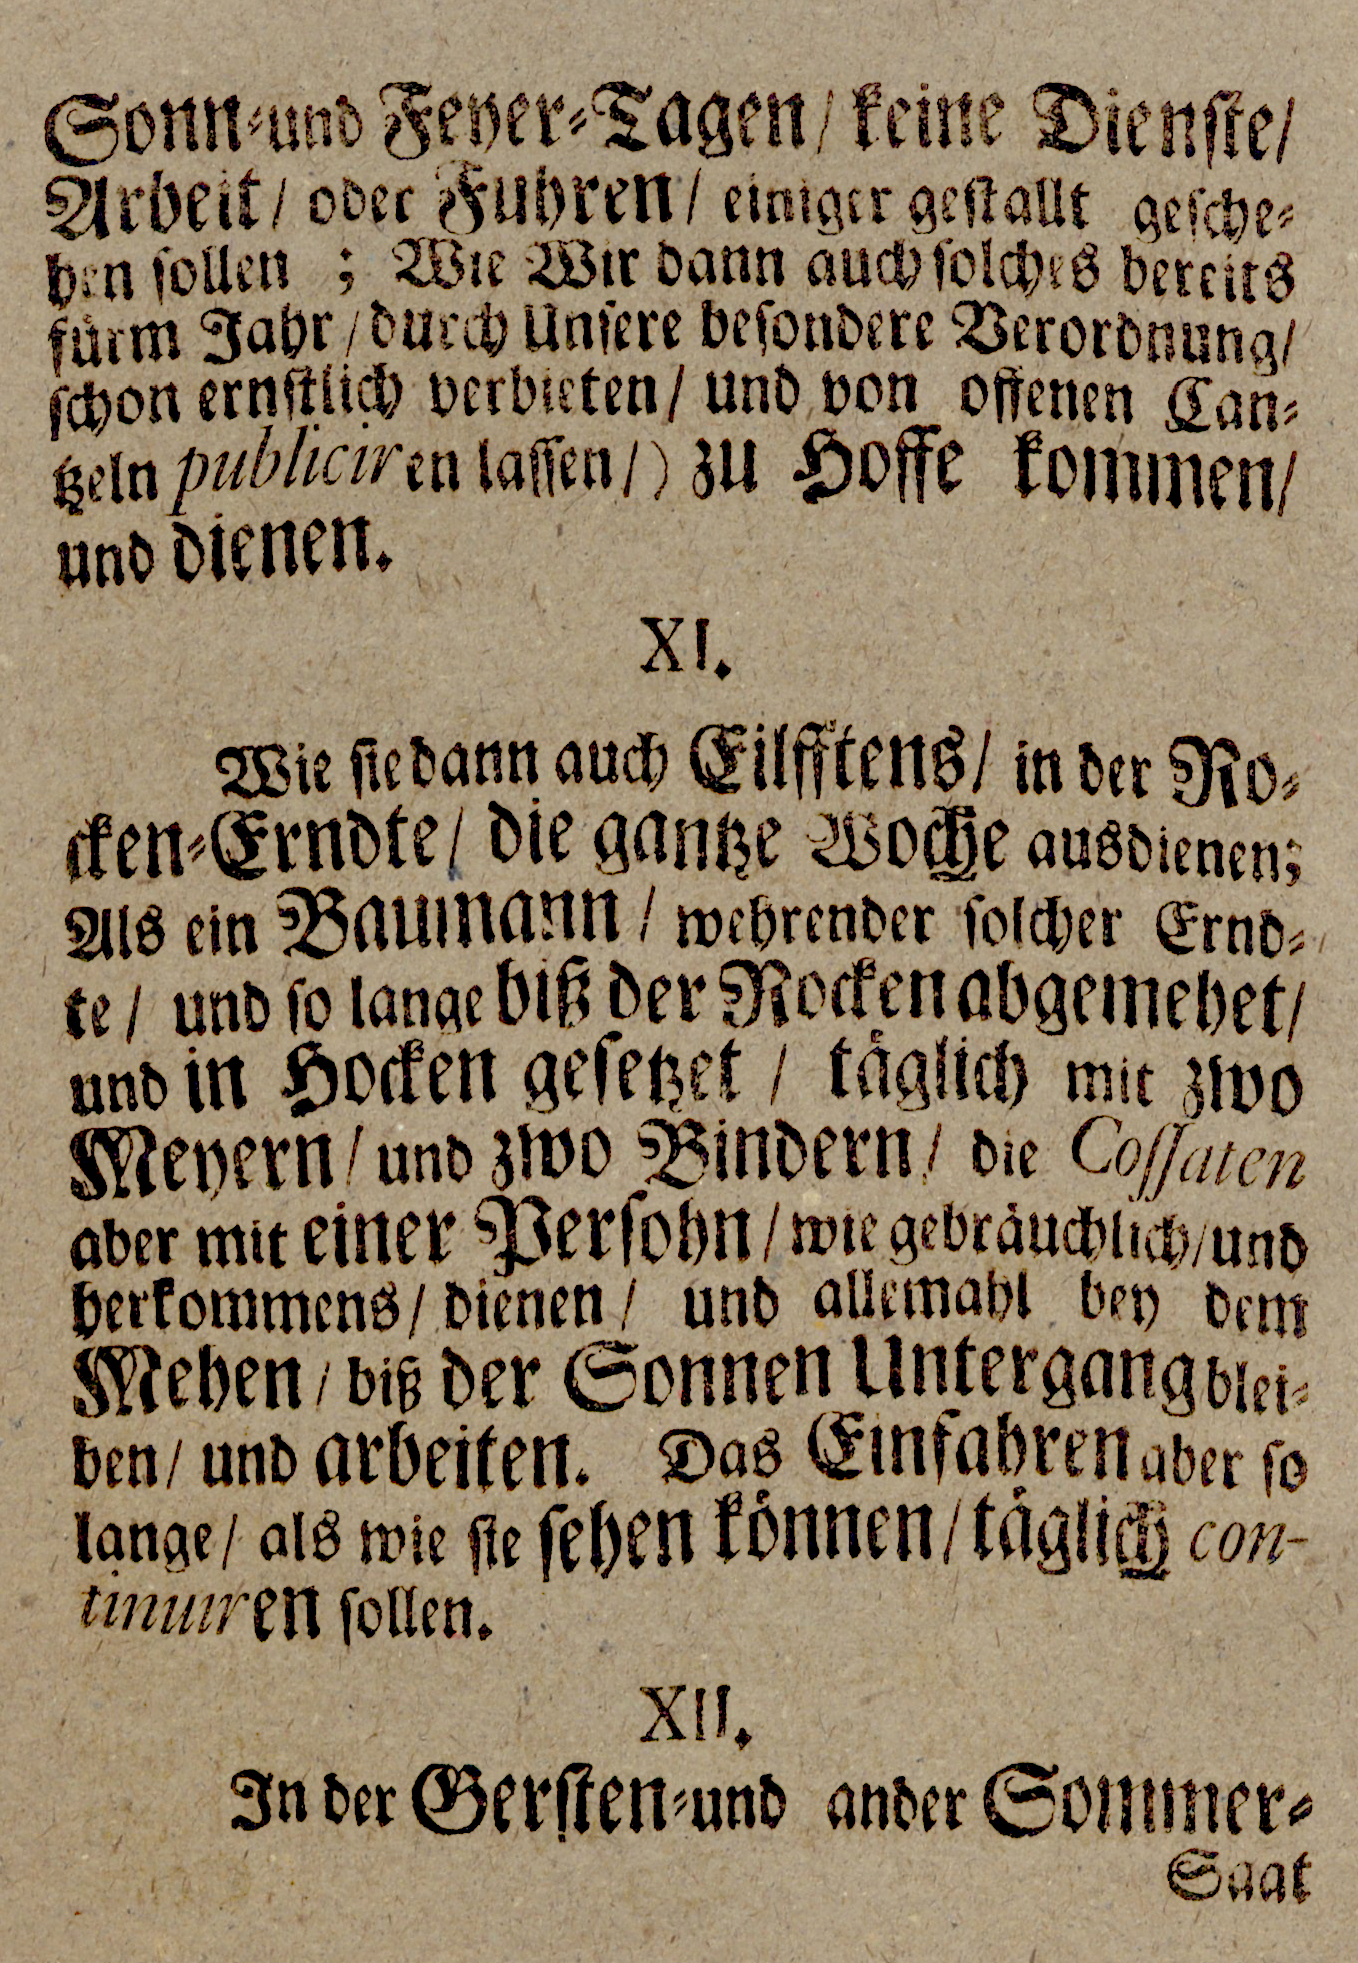 Sonn-und Feyer-Tagen/ keine Dienste/
Arbeit/ oder Fuhren/ einiger gestallt gesche-
hen sollen ; Wie Wir dann auch solches bereits
fürm Jahr/ durch Unsere besondere Verordnung/
schon ernstlich verbieten/ und von offenen Can-
tzeln publiciren lassen/) zu Hoffe kommen/
und dienen.
XI.
Wie sie dann auch Eilfftens/ in der Ro-
cken-Erndte/ die gantze Woche ausdienen;
Als ein Baumann/ wehrender solcher Ernd-
te/ und so lange biß der Rocken abgemehet/
und in Hocken gesetzet / täglich mit zwo
Meyern/ und zwo Bindern/ die Cossaten
aber mit einer Persohn/ wie gebräuchlich/ und
herkommens/ dienen/ und allemahl bey dem
Mehen/ biß der Sonnen Untergang blei-
ben/ und arbeiten. Das Einfahren aber so
lange/ als wie sie sehen können/ täglich con-
tinuiren sollen.
XII.
In der Gersten-und ander Sommer-
Saat